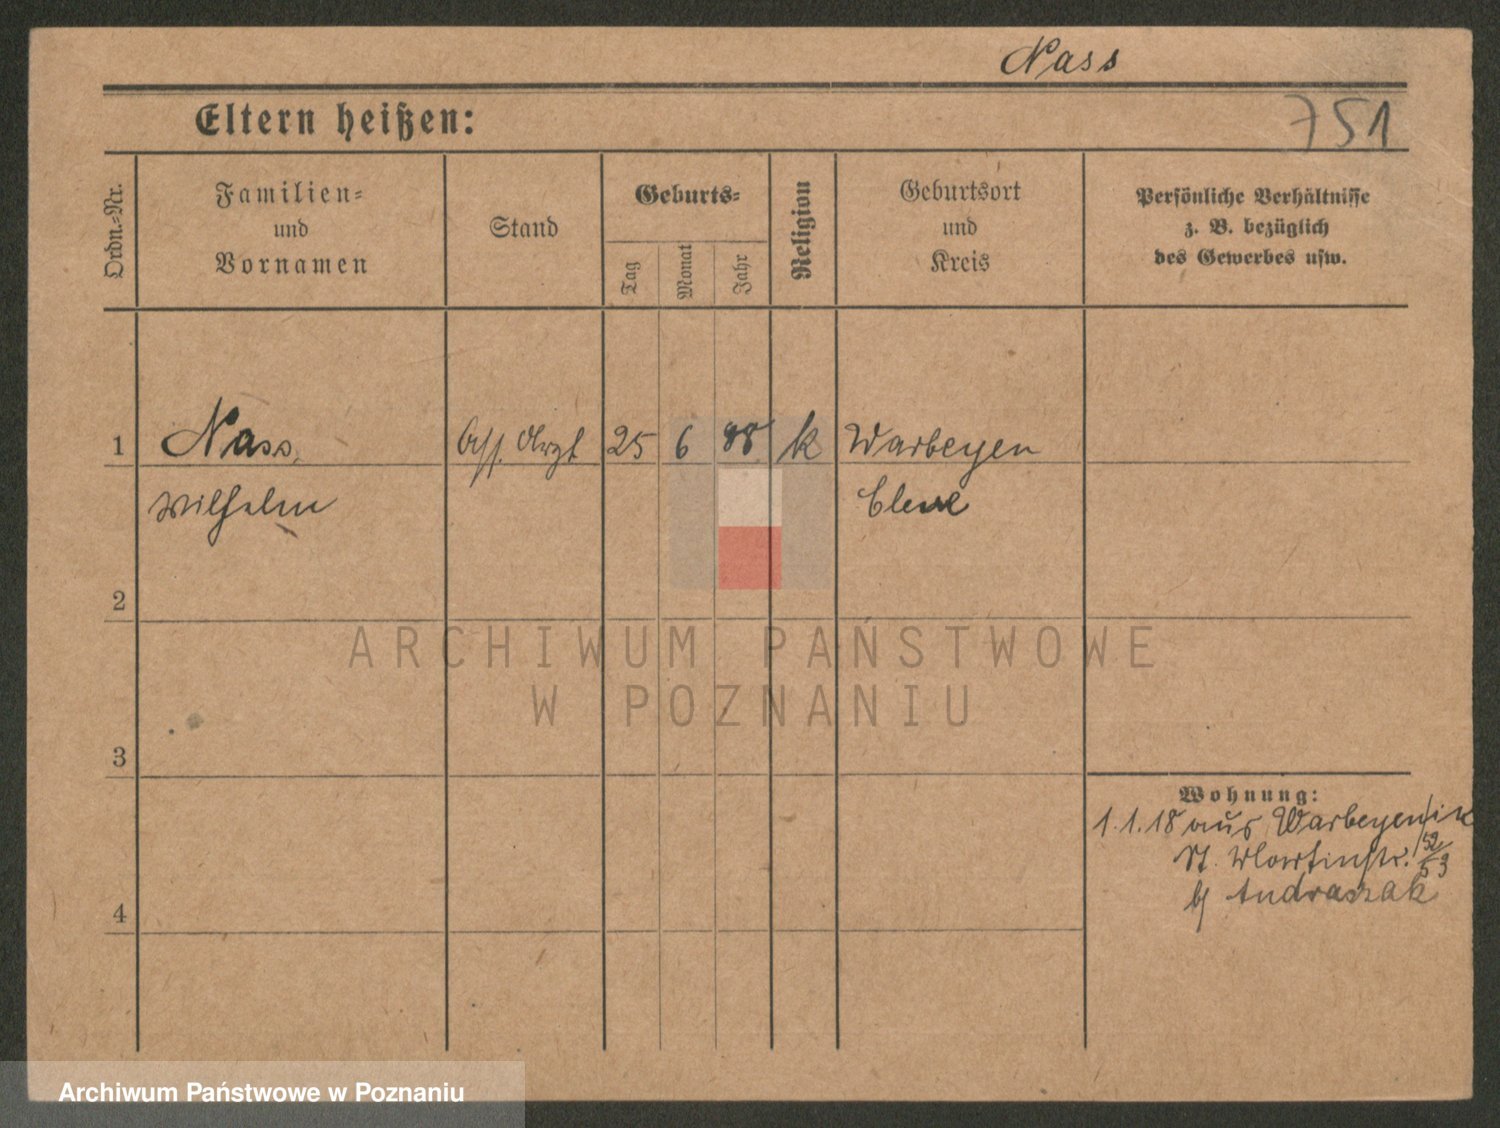 Nass
Eltern heißen:
751
Ordn.-Nr.
Familien-
und
Vornamen
Stand
Geburts-
Tag
Monat
Jahr
Religion
Geburtsort
und
Kreis
Persönliche Verhältnisse
z. B. bezüglich
des Gewerbes usw.
1
Nass,
Ass. Arzt
25
6
88
k
Warbeyen
Wilhelm
Cleve
2
ARCHIWUM PAŃSTWOWE
W POZNANIU
3
Wohnung:
1.1.18 aus Warbeyen
St. Martinstr. 52/53
b/ Andraszak
4
Archiwum Państwowe w Poznaniu